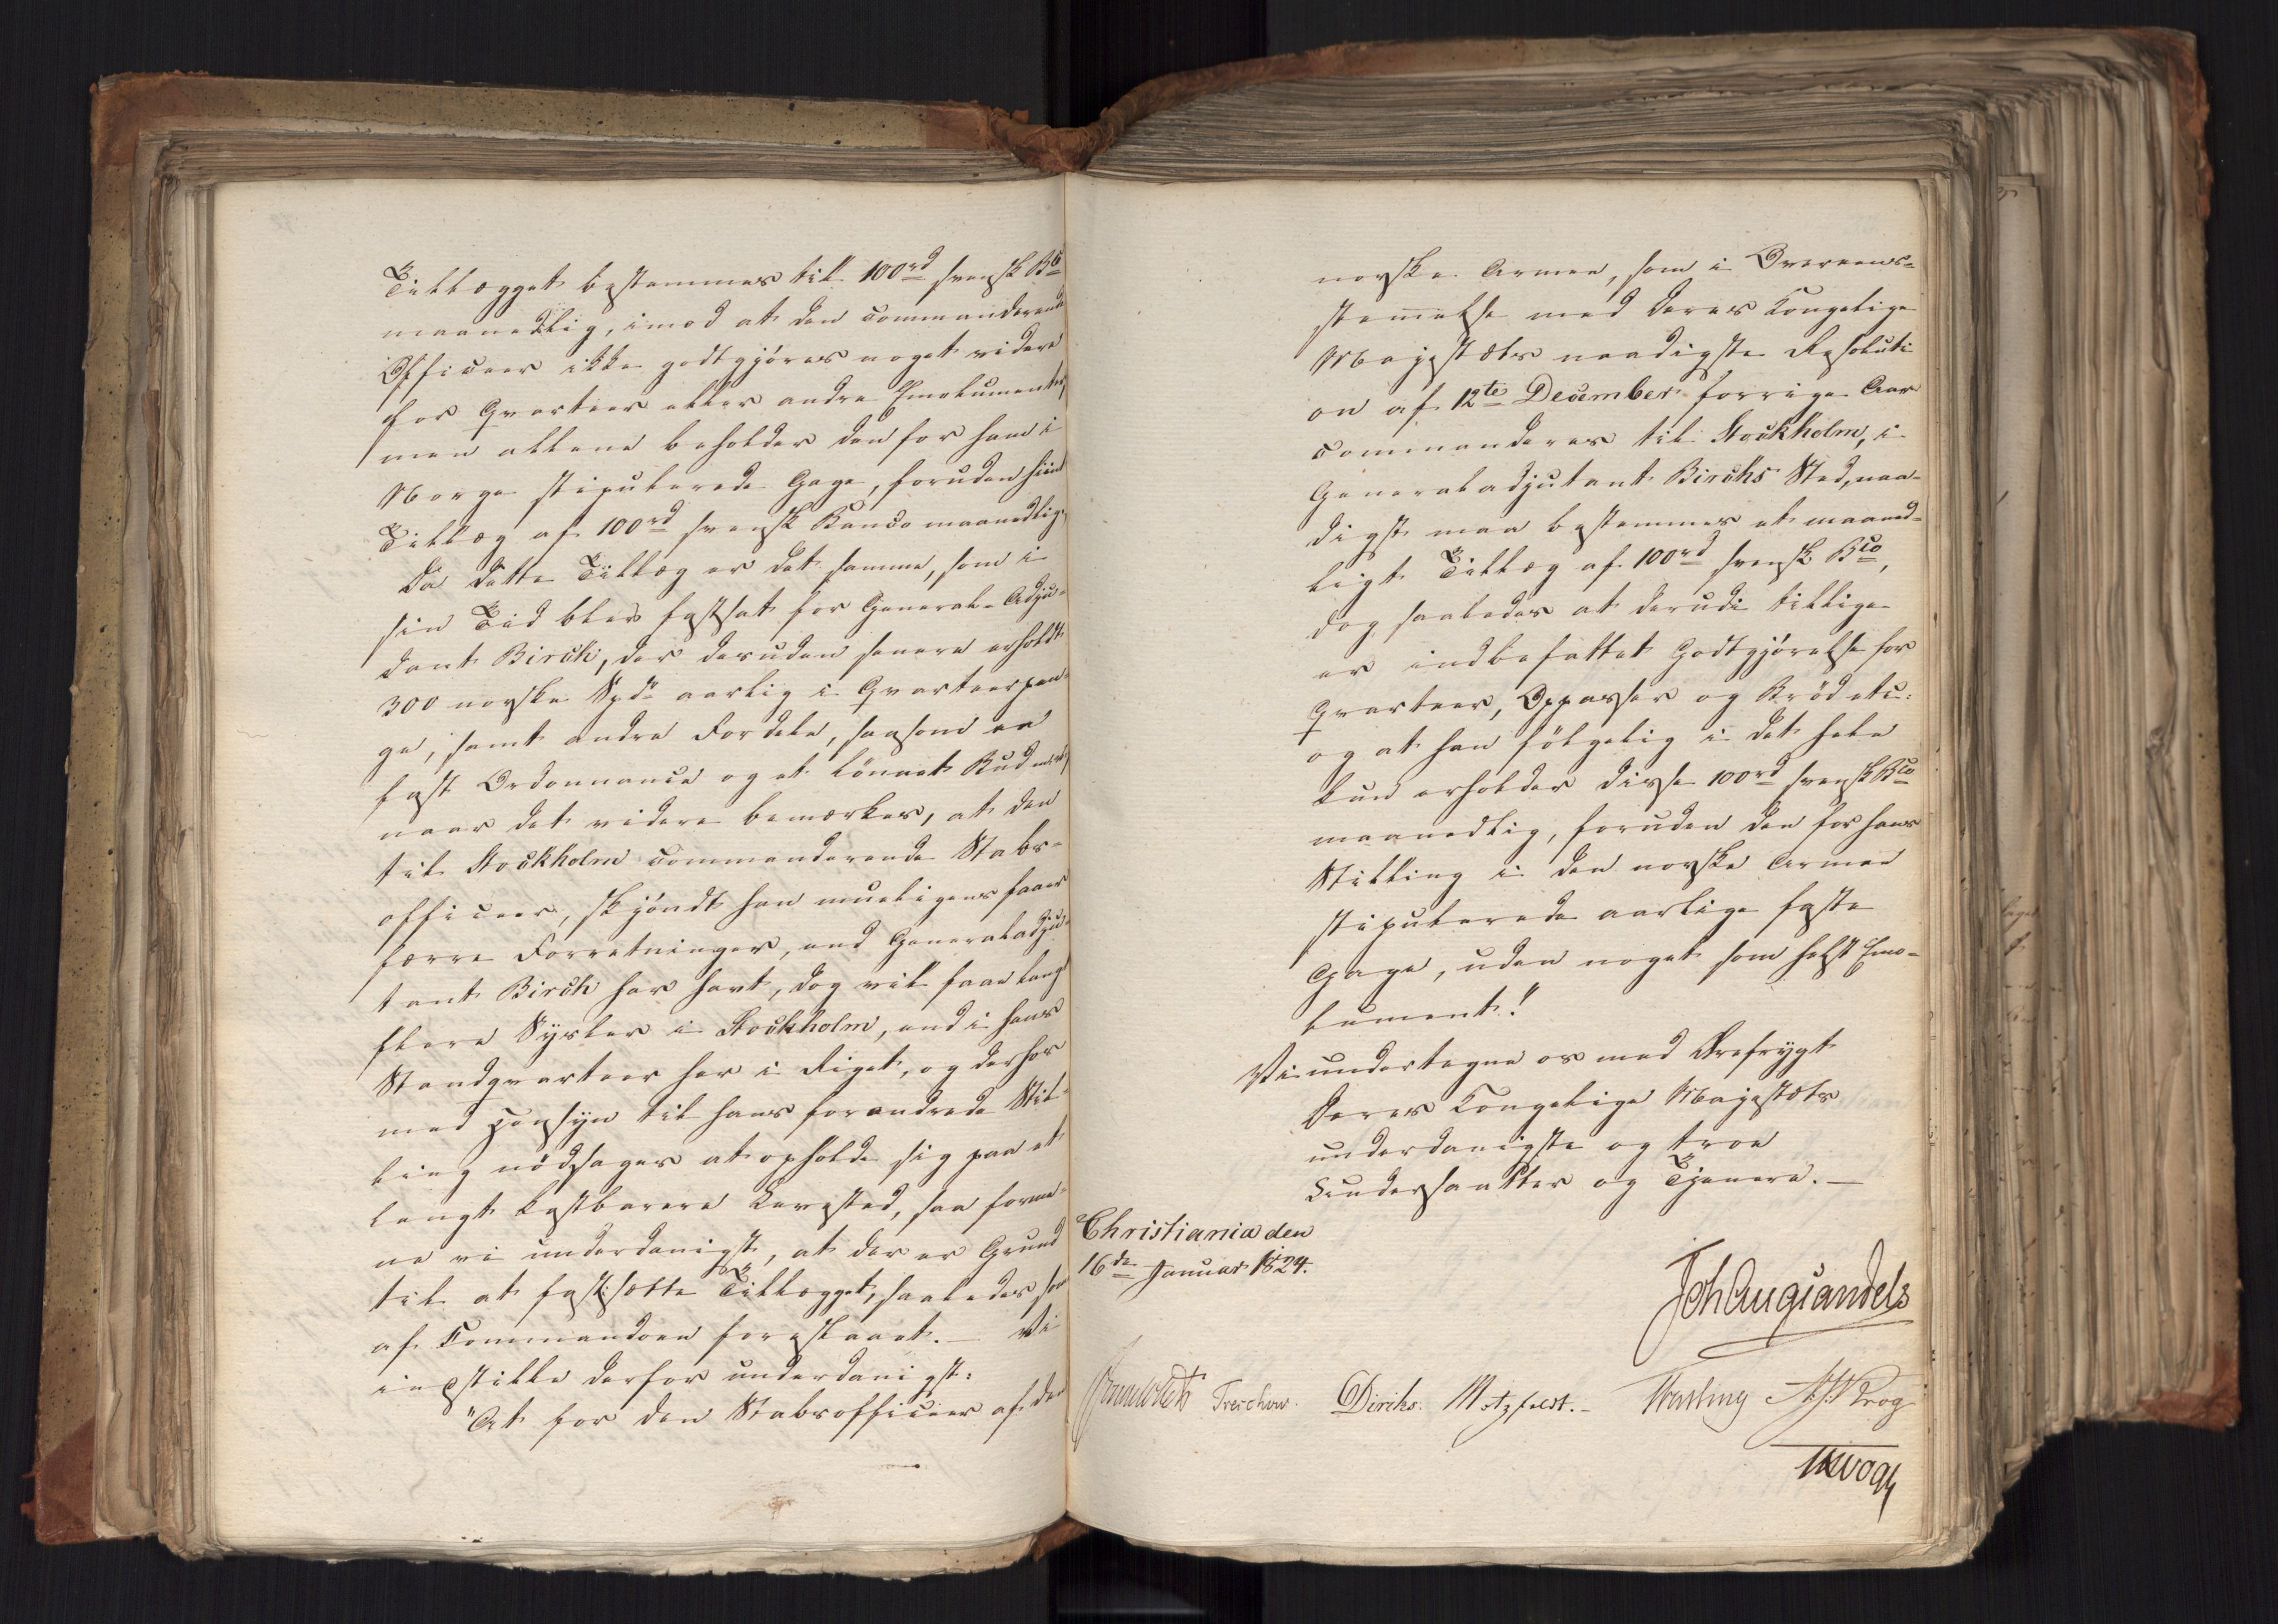 Tillægget bestemmes til 100rd svensk Bco
maanedlig, imod at den commanderende
Officeer ikke godtgjøres noget videre
for Qvarteer eller andre Emolumenter,
men allene beholder den for ham i
Norge stipulerede Gage, foruden hiint
Tillæg af 100rd svensk Banco maanedlig.
Da dette Tillæg er det samme, som i
sin Tid blev fastsat for General-Adju-
dant Birch, der desuden senere erholdt
300 norske Spd aarlig i Qvarteerpen-
ge, samt andre Fordele, saasom en
fast Ordonnance og et lönnet Bud
naar det videre bemærkes, at den
til Stockholm commanderende Stabs-
officeer, skjöndt han mueligens faaer
færre Forretninger, end Generaladju-
tant Birch har havt, dog vil faae langt
flere Sysler i Stockholm, end i hans
Standqvarteer her i Riget, og derhos
med Hensyn til hans forandrede Stil-
ling nödsages at opholde sig paa et
langt kostbarere Levested, saa forme-
ne vi underdanigst, at der er Grund
til at fastsætte Tillægget, saaledes som
af Commandoen foreslaaet. — Vi
indstille derfor underdanigst:
"At for den Stabsofficeer af den
norske Armee, som i Overeens-
stemmelse med Deres Kongelige
Majestæts naadigste Resoluti
on af 12te December forrige Aar
commanderes til Stockholm, i
Generaladjutant Birchs Sted, naa-
digst maa bestemmes et maaned-
ligt Tillæg af 100rd svensk Bco,
dog saaledes at derudi tillige
er indbefattet Godtgjörelse for
Qvarteer, Oppasser og Bröd etc:
og at han fölgelig i det hele
kun erholder disse 100rd svensk Bco
maanedlig, foruden den for hans
Stilling i den norske Armee
stipulerede aarlige faste
Gage, uden noget som helst Emo-
lument."
Vi undertegne os med Ærefrygt
Deres Kongelige Majestæts
underdanigste og troe
Undersaatter og Tjenere. —
Christiania den
16de Januar 1824.
Joh Aug Sandels
Treschow. Diriks. Motzfeldt. Fasting Krog
Vogt